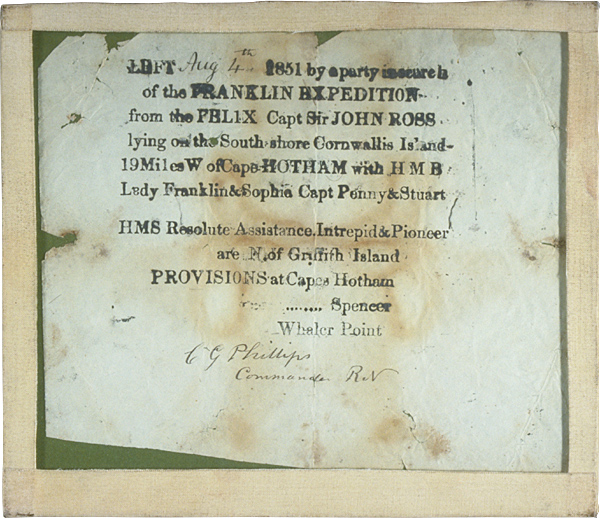 LEFT Aug 4th 1851 by a party in search
of the FRANKLIN EXPEDITION
from the FELIX Capt Sir JOHN ROSS
lying on the South shore Cornwallis Island
19 Miles W of Cape HOTHAM with H M B
Lady Franklin & Sophia Capt Penny & Stuart
HMS Resolute Assistance, Intrepid & Pioneer
are N. of Griffith Island
PROVISIONS at Capes Hotham
........ Spencer
Whaler Point
C G Phillips
Commander RN